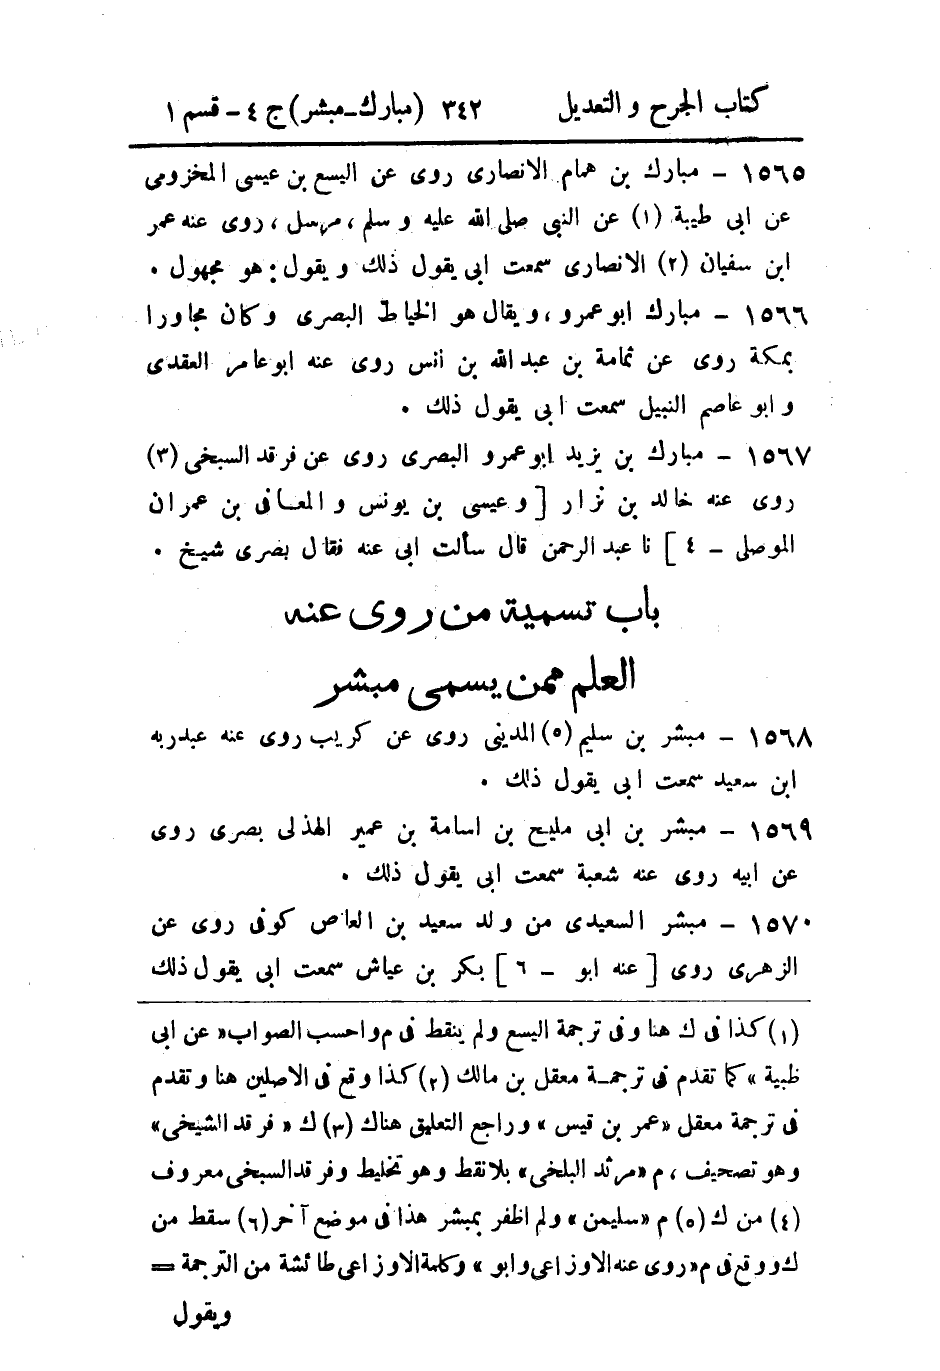 كتاب الجرح والتعديل ٣٤٢ (مبارك-مبشر) ج ٤ - قسم ١
١٥٦٥ - مبارك بن همام الانصارى روى عن اليسع بن عيسى المخزومى
عن ابى طيبة (١) عن النبى صلى الله عليه و سلم، مرسل، روى عنه عمر
ابن سفيان (٢) الانصارى سمعت ابى يقول ذلك و يقول: هو مجهول .
١٥٦٦ - مبارك ابو عمرو، ويقال هو الخياط البصرى وكان مجاورا
بمكة روى عن ثمامة بن عبد الله بن انس روى عنه ابو عامر العقدى
و ابو عاصم النبيل سمعت ابى يقول ذلك .
١٥٦٧ - مبارك بن يزيد ابو عمرو البصرى روى عن فرقد السبخى (٣)
روى عنه خالد بن نزار [ و عيسى بن يونس و المعافى بن عمران
الموصلى - ٤ ] نا عبد الرحمن قال سألت ابى عنه فقال بصرى شيخ .
باب تسمية من روى عنه
العلم ممن يسمى مبشر
١٥٦٨ - مبشر بن سليم (٥) المدينى روى عن كريب روى عنه عبدربه
ابن سعيد سمعت ابى يقول ذلك .
١٥٦٩ - مبشر بن ابى مليح بن اسامة بن عمير الهذلى بصرى روى
عن ابيه روى عنه شعبة سمعت ابى يقول ذلك .
١٥٧٠ - مبشر السعيدى من ولد سعيد بن العاص كوفى روى عن
الزهرى روى [ عنه ابو - ٦ ] بكر بن عياش سمعت ابى يقول ذلك
(١) كذا فى ك هنا وفى ترجمة اليسع ولم ينقط فى م واحسب الصواب « عن ابى
ظبية » كما تقدم فى ترجمة معقل بن مالك (٢) كذا وقع فى الاصلين هنا وتقدم
فى ترجمة معقل «عمر بن قيس » وراجع التعليق هناك (٣) ك « فرقد الشيخى»
وهو تصحيف ، م «مرثد البلخى» بلا نقط وهو تخليط وفرقد السبخى معروف
(٤) من ك (٥) م «سليمن» ولم اظفر بمبشر هذا فى موضع آخر (٦) سقط من
ك ووقع فى م «روى عنه الاوزاعى وابو » وكلمة الاوزاعى طائشة من الترجمة =
ويقول